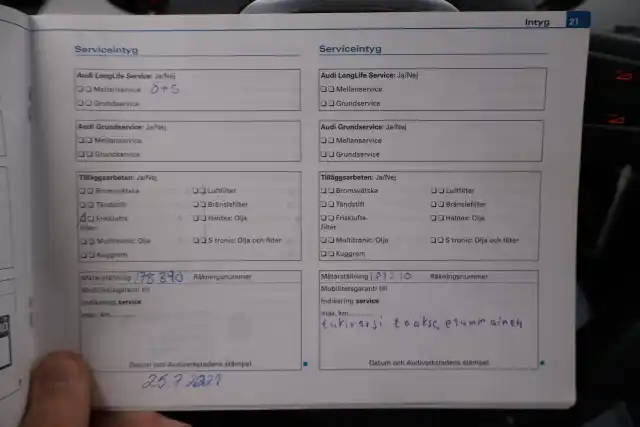 Intyg 21
Serviceintyg
Audi LongLife Service: Ja/Nej
Mellanservice O+S
Grundservice
Audi Grundservice: Ja/Nej
Mellanservice
Grundservice
Tilläggsarbeten: Ja/Nej
Bromsvätska Luftfilter
Tändstift Bränslefilter
Frisklufts- Haldex: Olja
filter
Multitronic: Olja S tronic: Olja och filter
Kuggrem
Mätarställning 178390 Räkningsnummer
Mobilitetsgaranti till
Indikering service
max. km
Datum och Audiverkstadens stämpel
25.7.2021
Serviceintyg
Audi LongLife Service: Ja/Nej
Mellanservice
Grundservice
Audi Grundservice: Ja/Nej
Mellanservice
Grundservice
Tilläggsarbeten: Ja/Nej
Bromsvätska Luftfilter
Tändstift Bränslefilter
Frisklufts- Haldex: Olja
filter
Multitronic: Olja S tronic: Olja och filter
Kuggrem
Mätarställning Räkningsnummer
Mobilitetsgaranti till
Indikering service
max. km
Datum och Audiverkstadens stämpel